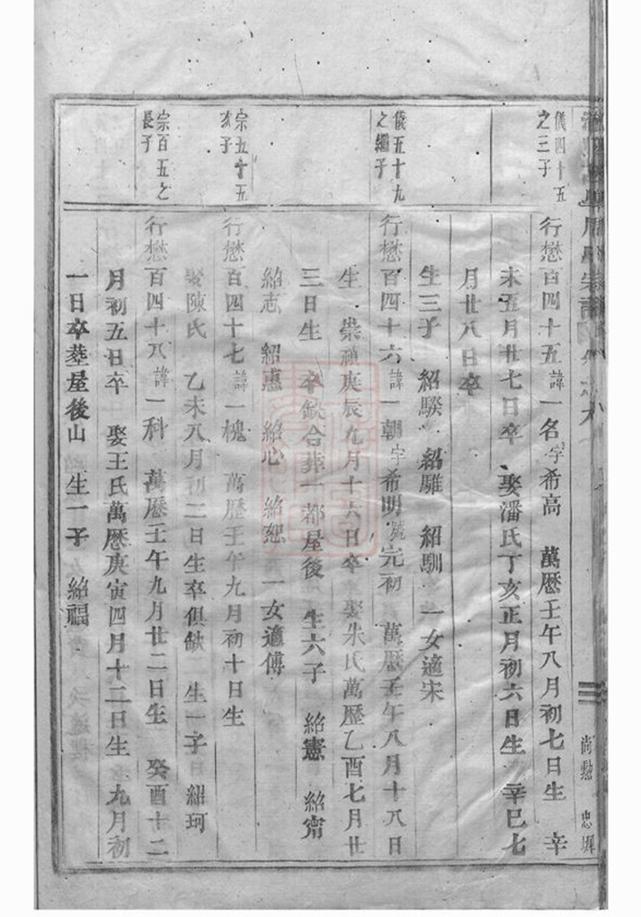 儀四十五
之三子
行懋百四十五諱一名字希高 萬歷壬午八月初七日生 辛
未五月廿七日卒 娶潘氏丁亥正月初六日生 辛巳七
月廿八日卒
生三子 紹騤 紹騅 紹馴 一女適宋
儀五十九
之繼子
行懋百四十六諱一朝字希明號完初 萬歷壬午八月十八日
生 崇禎庚辰九月十六日卒 娶朱氏萬歷乙酉七月廿
三日生 卒缺合葬一都屋後 生六子 紹憲 紹甯
紹志 紹憓 紹心 紹恕 一女適傅
宗五十五
次子
行懋百四十七諱一槐 萬歷壬午九月初十日生
娶陳氏 乙未八月初二日生卒俱缺 生一子 紹珂
宗百五之
長子
行懋百四十八諱一科 萬歷壬午九月廿二日生 癸酉十二
月初五日卒 娶王氏萬歷庚寅四月十二日生 九月初
一日卒葬屋後山 生一子 紹福